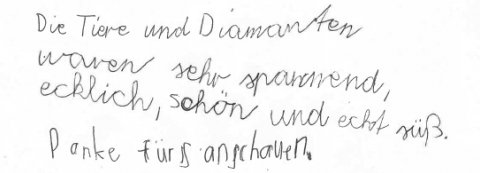 Die Tiere und Diamanten
waren sehr spannend,
ecklich, schön und echt süß.
Danke fürs anschauen.